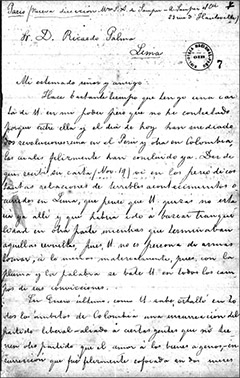 Paris (Nueva dirección Mme S. A. de Samper - A. Samper y Cía
23 rue d'Hauteville)
S. D. Ricardo Palma
Lima
7
Mi estimado señor y amigo:
Hace bastante tiempo que tengo una car-
ta de U. en mi poder pero que no he contestado
porque entre ella y el día de hoy han mediado
dos revoluciones una en el Perú y otra en Colombia,
las cuales felizmente han concluido ya. Des de
que recibí su carta (Nov. 19) vi en los periódicos
tantas relaciones de terribles acontecimientos o-
curridos en Lima, que pensé que U. quizás no esta-
ría allí y que habría ido a buscar tranqui-
lidad en otra parte mientras que terminaban
aquellas revueltas, pues U. no es persona de armas
tomar, a lo menos materialmente, pues, con la
pluma y con la palabra se bate U. en todos los cam-
pos de sus convicciones.
En Enero último, como U. sabe estalló en to-
dos los ámbitos de Colombia una insurrección del
partido liberal aliado a ciertas gentes que no tie-
nen otro partido que el amor a los bienes agenos, in-
surrección que fue plenamente sofocada en dos meses